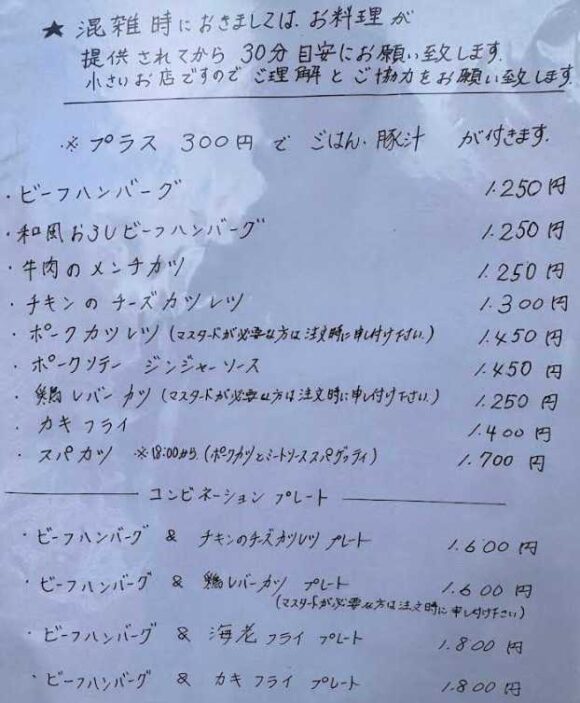 ★ 混雑時におきましては、お料理が
提供されてから 30分 目安にお願い致します.
小さいお店ですので ご理解と ご協力をお願い致します.
※ プラス 300円 で ごはん・豚汁 が付きます.
・ビーフハンバーグ 1.250円
・和風おろしビーフハンバーグ 1.250円
・牛肉のメンチカツ 1.250円
・チキンのチーズカツレツ 1.300円
・ポークカツレツ (マスタードが必要な方は注文時に申し付け下さい.) 1.450円
・ポークソテー ジンジャーソース 1.450円
・鶏レバーカツ (マスタードが必要な方は注文時に申し付け下さい.) 1.250円
・カキフライ 1.400円
・スパカツ ※18:00から (ポークカツとミートソーススパゲッティ) 1.700円
コンビネーション プレート
・ビーフハンバーグ & チキンのチーズカツレツ プレート 1.600円
・ビーフハンバーグ & 鶏レバーカツ プレート 1.600円
(マスタードが必要な方は注文時に申し付け下さい)
・ビーフハンバーグ & 海老フライ プレート 1.800円
・ビーフハンバーグ & カキフライ プレート 1.800円